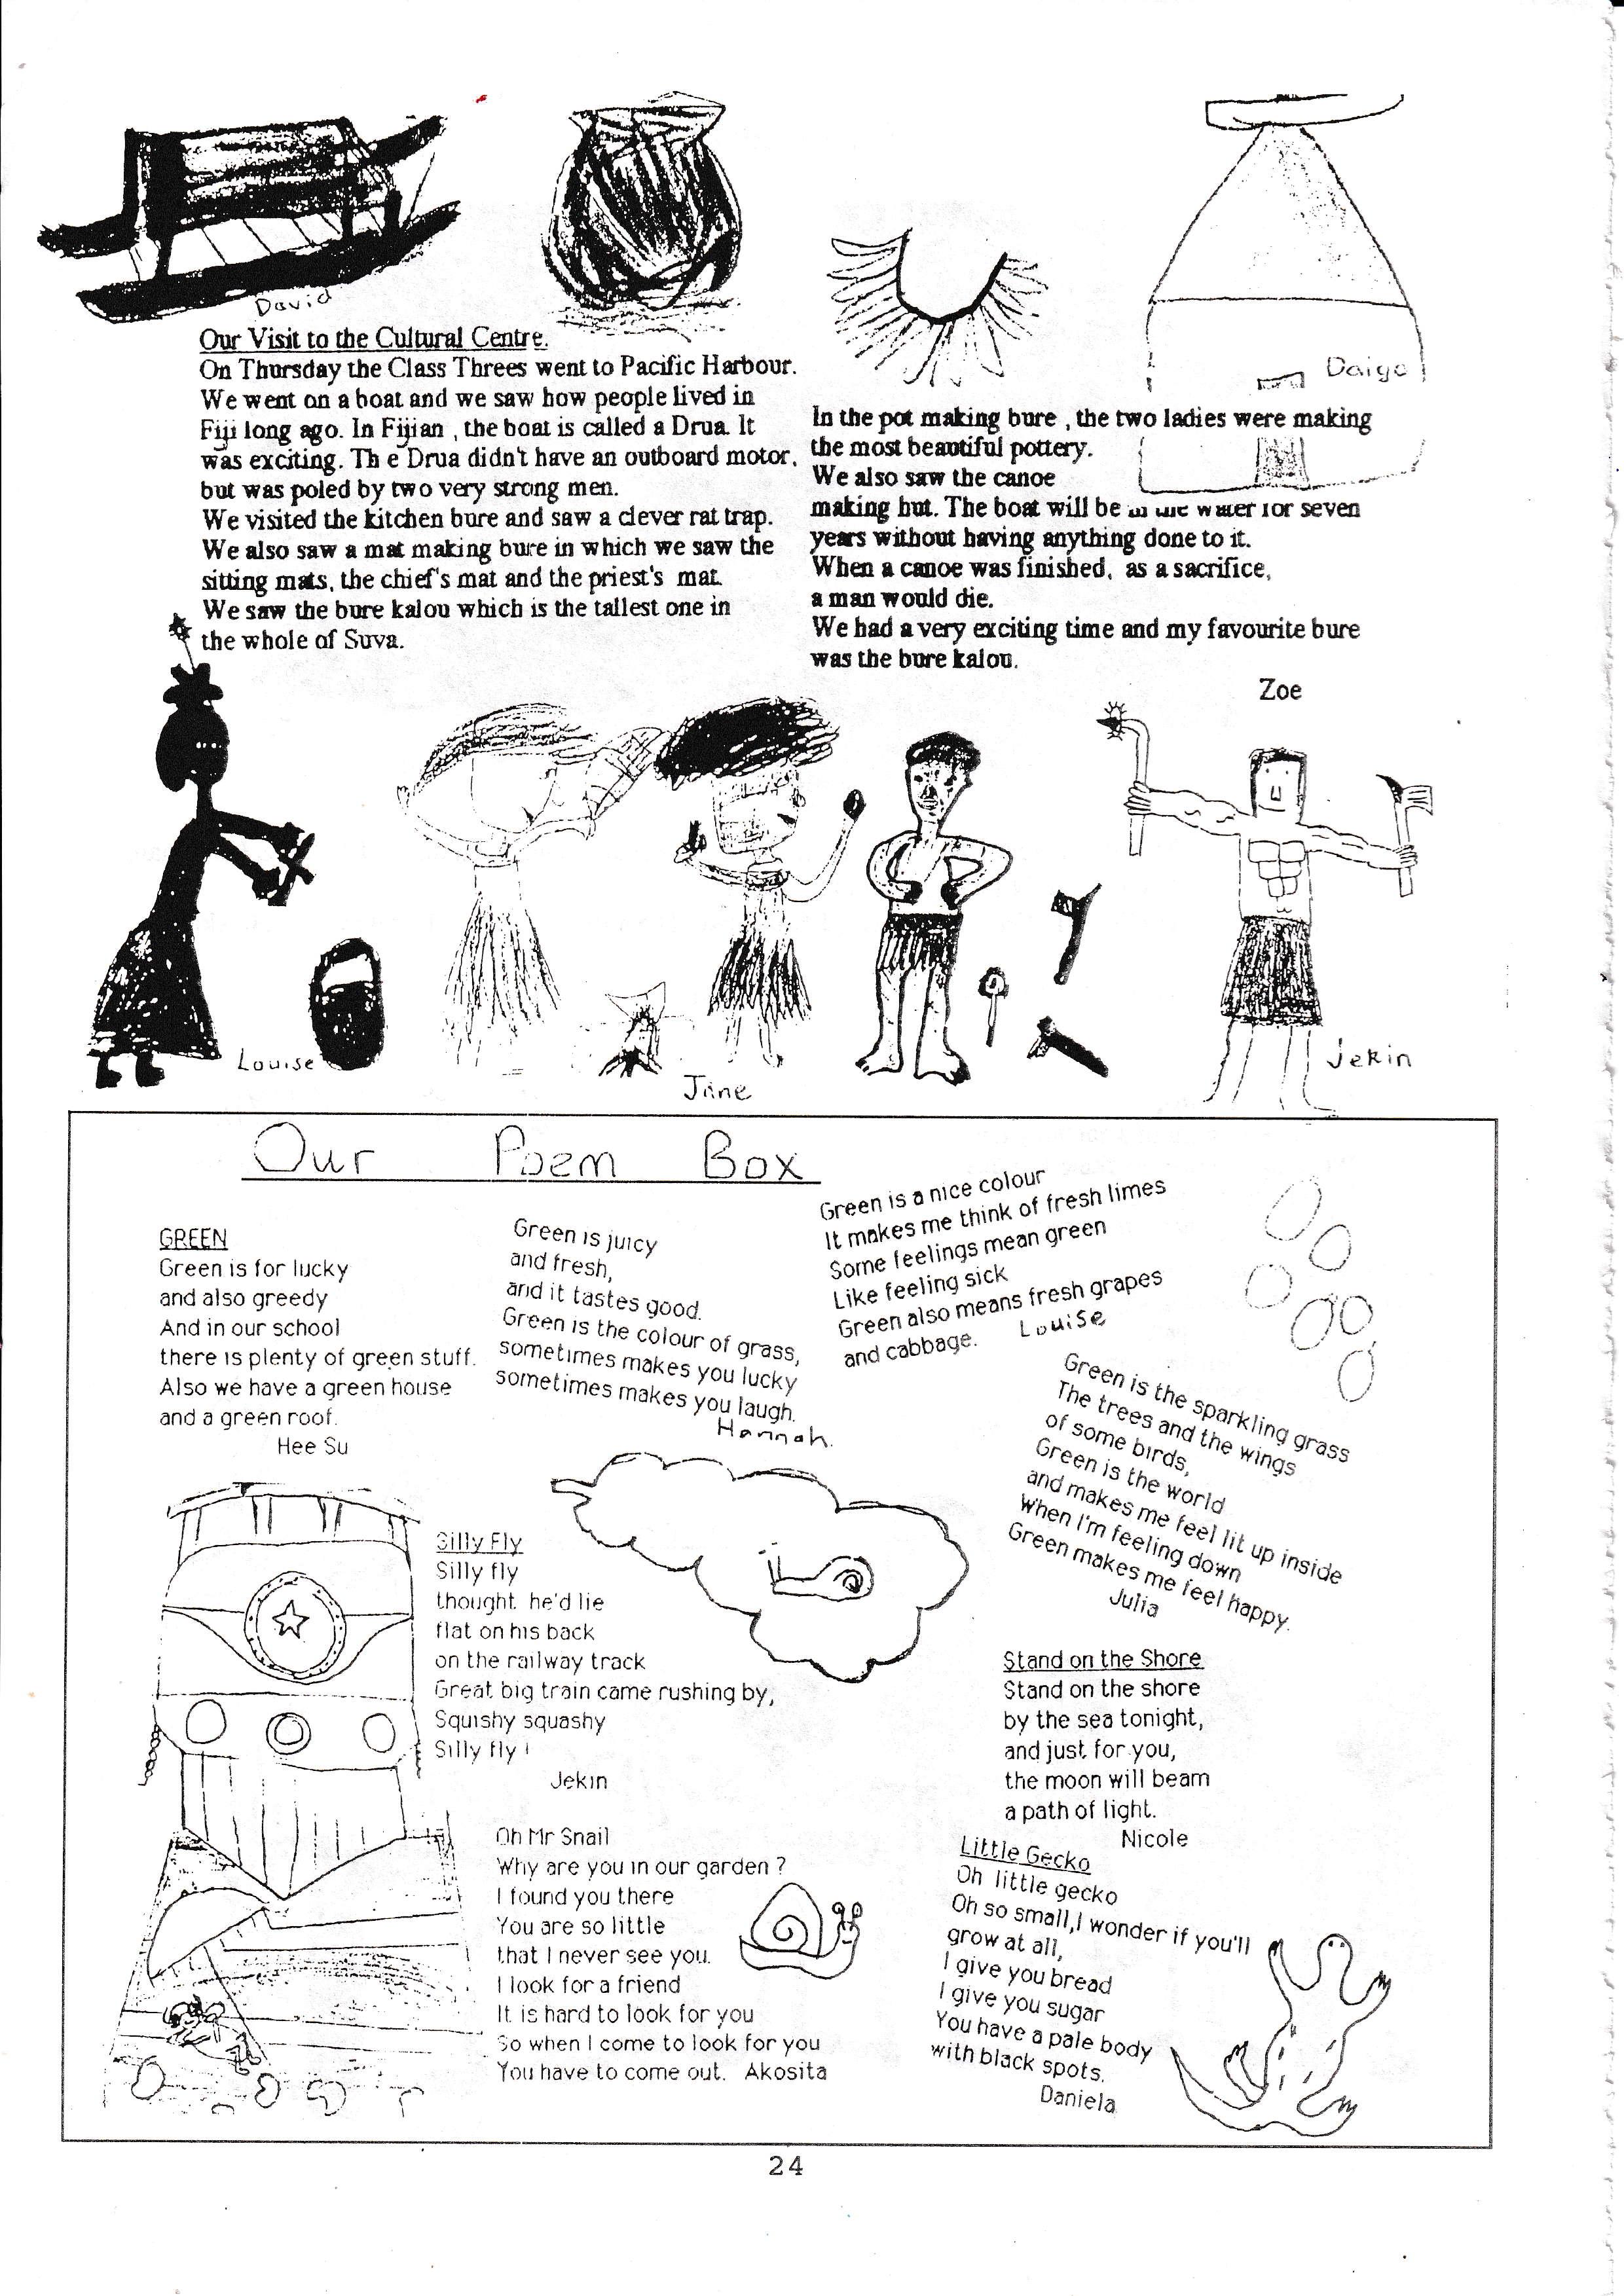 David
Our Visit to the Cultural Centre.
On Thursday the Class Threes went to Pacific Harbour.
We went on a boat and we saw how people lived in
Fiji long ago. In Fijian , the boat is called a Drua. It
was exciting. Th e Drua didn't have an outboard motor,
but was poled by two very strong men.
We visited the kitchen bure and saw a clever rat trap.
We also saw a mat making bure in which we saw the
sitting mats, the chief's mat and the priest's mat.
We saw the bure kalou which is the tallest one in
the whole of Suva.
Daigo
In the pot making bure , the two ladies were making
the most beautiful pottery.
We also saw the canoe
making hut. The boat will be in the water for seven
years without having anything done to it.
When a canoe was finished, as a sacrifice,
a man would die.
We had a very exciting time and my favourite bure
was the bure kalou.
Zoe
Louise
Jane
Jekin
Our Poem Box
GREEN
Green is for lucky
and also greedy
And in our school
there is plenty of green stuff.
Also we have a green house
and a green roof.
Hee Su
Green is juicy
and fresh,
and it tastes good.
Green is the colour of grass,
sometimes makes you lucky
sometimes makes you laugh.
Hannah.
Green is a nice colour
It makes me think of fresh limes
Some feelings mean green
Like feeling sick
Green also means fresh grapes
and cabbage.
Louise
Green is the sparkling grass
The trees and the wings
of some birds,
Green is the world
and makes me feel lit up inside
When I'm feeling down
Green makes me feel happy.
Julia
Silly Fly
Silly fly
thought he'd lie
flat on his back
on the railway track
Great big train came rushing by,
Squishy squashy
Silly fly !
Jekin
Stand on the Shore
Stand on the shore
by the sea tonight,
and just for you,
the moon will beam
a path of light.
Nicole
Oh Mr Snail
Why are you in our garden ?
I found you there
You are so little
that I never see you.
I look for a friend
It is hard to look for you
So when I come to look for you
You have to come out. Akosita
Little Gecko
Oh little gecko
Oh so small,I wonder if you'll
grow at all,
I give you bread
I give you sugar
You have a pale body
with black spots.
Daniela
24